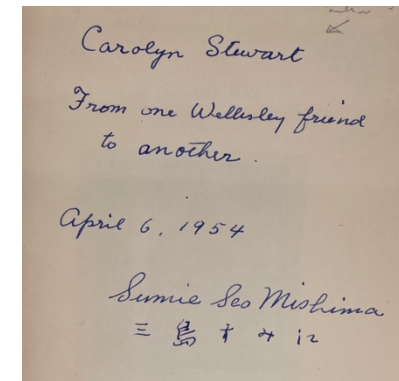 Carolyn Stewart
From one Wellesley friend
to another.
April 6, 1954
Sumie Seo Mishima
三島すみ江